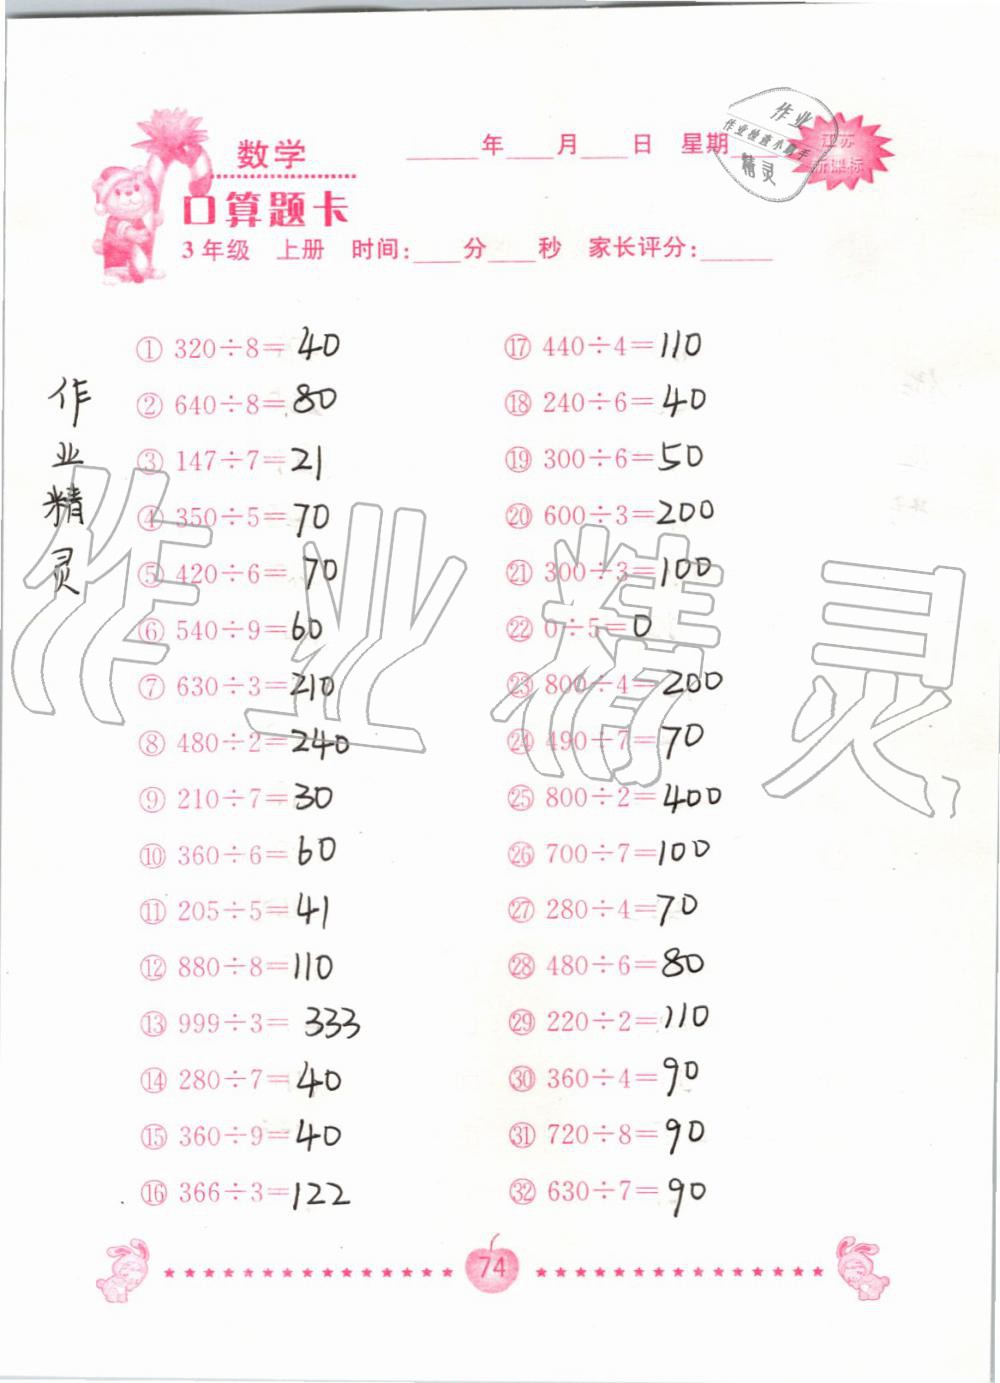 数学
____年___月___日 星期___
作业
作业检查小助手
精灵
江苏
新课标
口算题卡
3年级 上册 时间:___分___秒 家长评分:_____
作业精灵
① 320÷8=40
② 640÷8=80
③ 147÷7=21
④ 350÷5=70
⑤ 420÷6=70
⑥ 540÷9=60
⑦ 630÷3=210
⑧ 480÷2=240
⑨ 210÷7=30
⑩ 360÷6=60
⑪ 205÷5=41
⑫ 880÷8=110
⑬ 999÷3=333
⑭ 280÷7=40
⑮ 360÷9=40
⑯ 366÷3=122
⑰ 440÷4=110
⑱ 240÷6=40
⑲ 300÷6=50
⑳ 600÷3=200
㉑ 300÷3=100
㉒ 0÷5=0
㉓ 800÷4=200
㉔ 490÷7=70
㉕ 800÷2=400
㉖ 700÷7=100
㉗ 280÷4=70
㉘ 480÷6=80
㉙ 220÷2=110
㉚ 360÷4=90
㉛ 720÷8=90
㉜ 630÷7=90
作业精灵
74